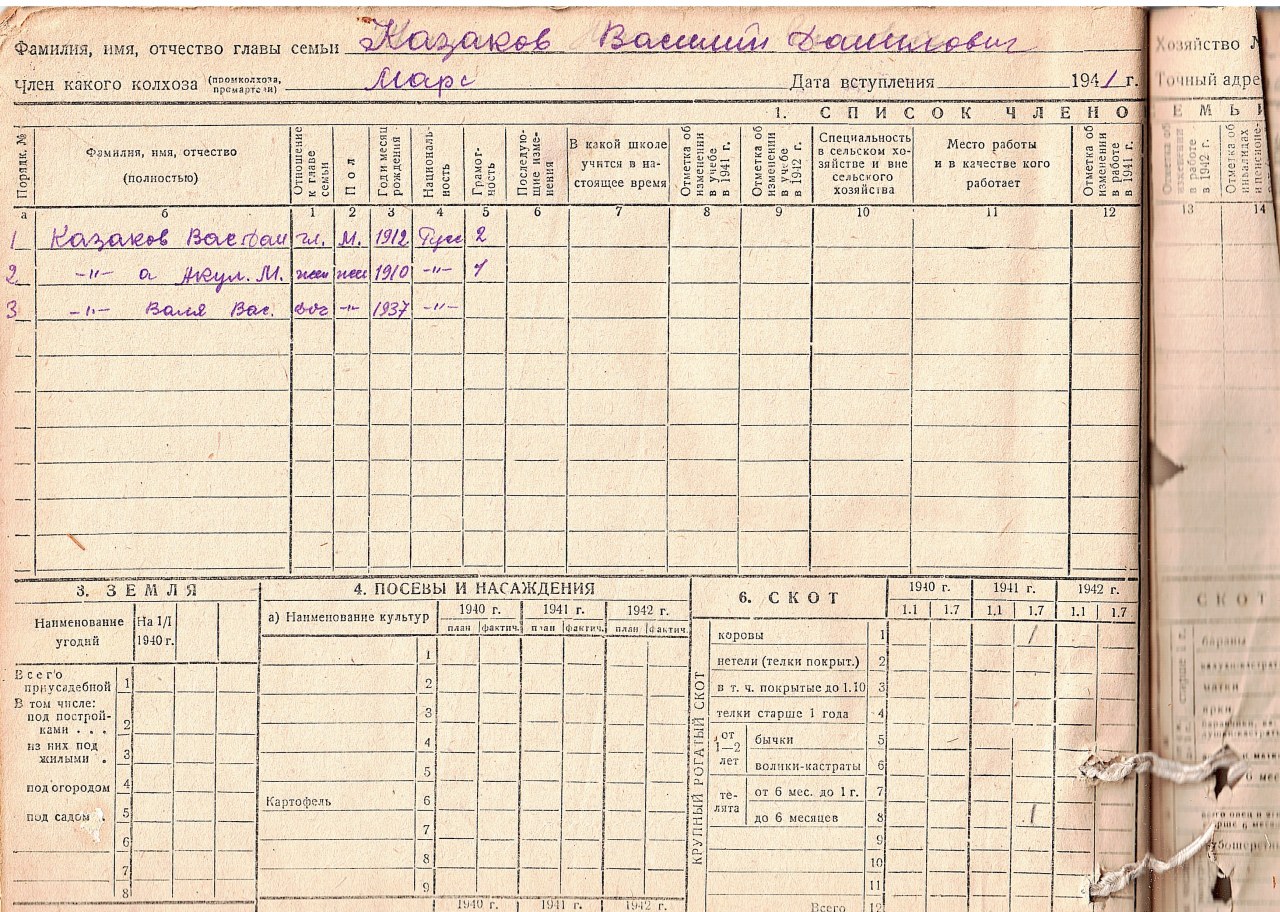 Фамилия, имя, отчество главы семьи Казаков Василий Данилович
Член какого колхоза (промколхоза, промартели) Марс Дата вступления 1941 г.
Хозяйство №
Точный адре
1. СПИСОК ЧЛЕНО
ЕМЬИ
Порядк. №
Фамилия, имя, отчество (полностью)
Отношение к главе семьи
Пол
Год и месяц рождения
Националь-ность
Грамот-ность
Последую-щие изме-нения
В какой школе учится в на-стоящее время
Отметка об изменении в учебе в 1941 г.
Отметка об изменении в учебе в 1942 г.
Специальность в сельском хо-зяйстве и вне сельского хозяйства
Место работы и в качестве кого работает
Отметка об изменении в работе в 1941 г.
Отметка об изменении в работе в 1942 г.
Отметка об инвалидах и пенсионе-
а б 1 2 3 4 5 6 7 8 9 10 11 12 13 14
1 Казаков Вас Дан гл. М. 1912 Русс 2
2 -"- а Акул. М. жен жен 1910 -"- 1
3 -"- Валя Вас. доч -"- 1937 -"-
3. ЗЕМЛЯ
Наименование угодий
На 1/I 1940 г.
Всего приусадебной 1
В том числе:
под построй-ками . . . 2
из них под жилыми . 3
под огородом 4
под садом . 5
6
7
8
4. ПОСЕВЫ И НАСАЖДЕНИЯ
а) Наименование культур
1940 г. 1941 г. 1942 г.
план фактич. план фактич. план фактич.
1
2
3
4
5
Картофель 6
7
8
9
1940 г. 1941 г. 1942 г.
6. СКОТ
1940 г. 1941 г. 1942 г.
1.1 1.7 1.1 1.7 1.1 1.7
КРУПНЫЙ РОГАТЫЙ СКОТ
коровы 1 /
нетели (телки покрыт.) 2
в т. ч. покрытые до 1.10 3
телки старше 1 года 4
от 1—2 лет
бычки 5
волики-кастраты 6
те-лята
от 6 мес. до 1 г. 7
до 6 месяцев 8 /
9
10
11
Всего 12
СКОТ
старше 1 г.
бараны
матки
ярки